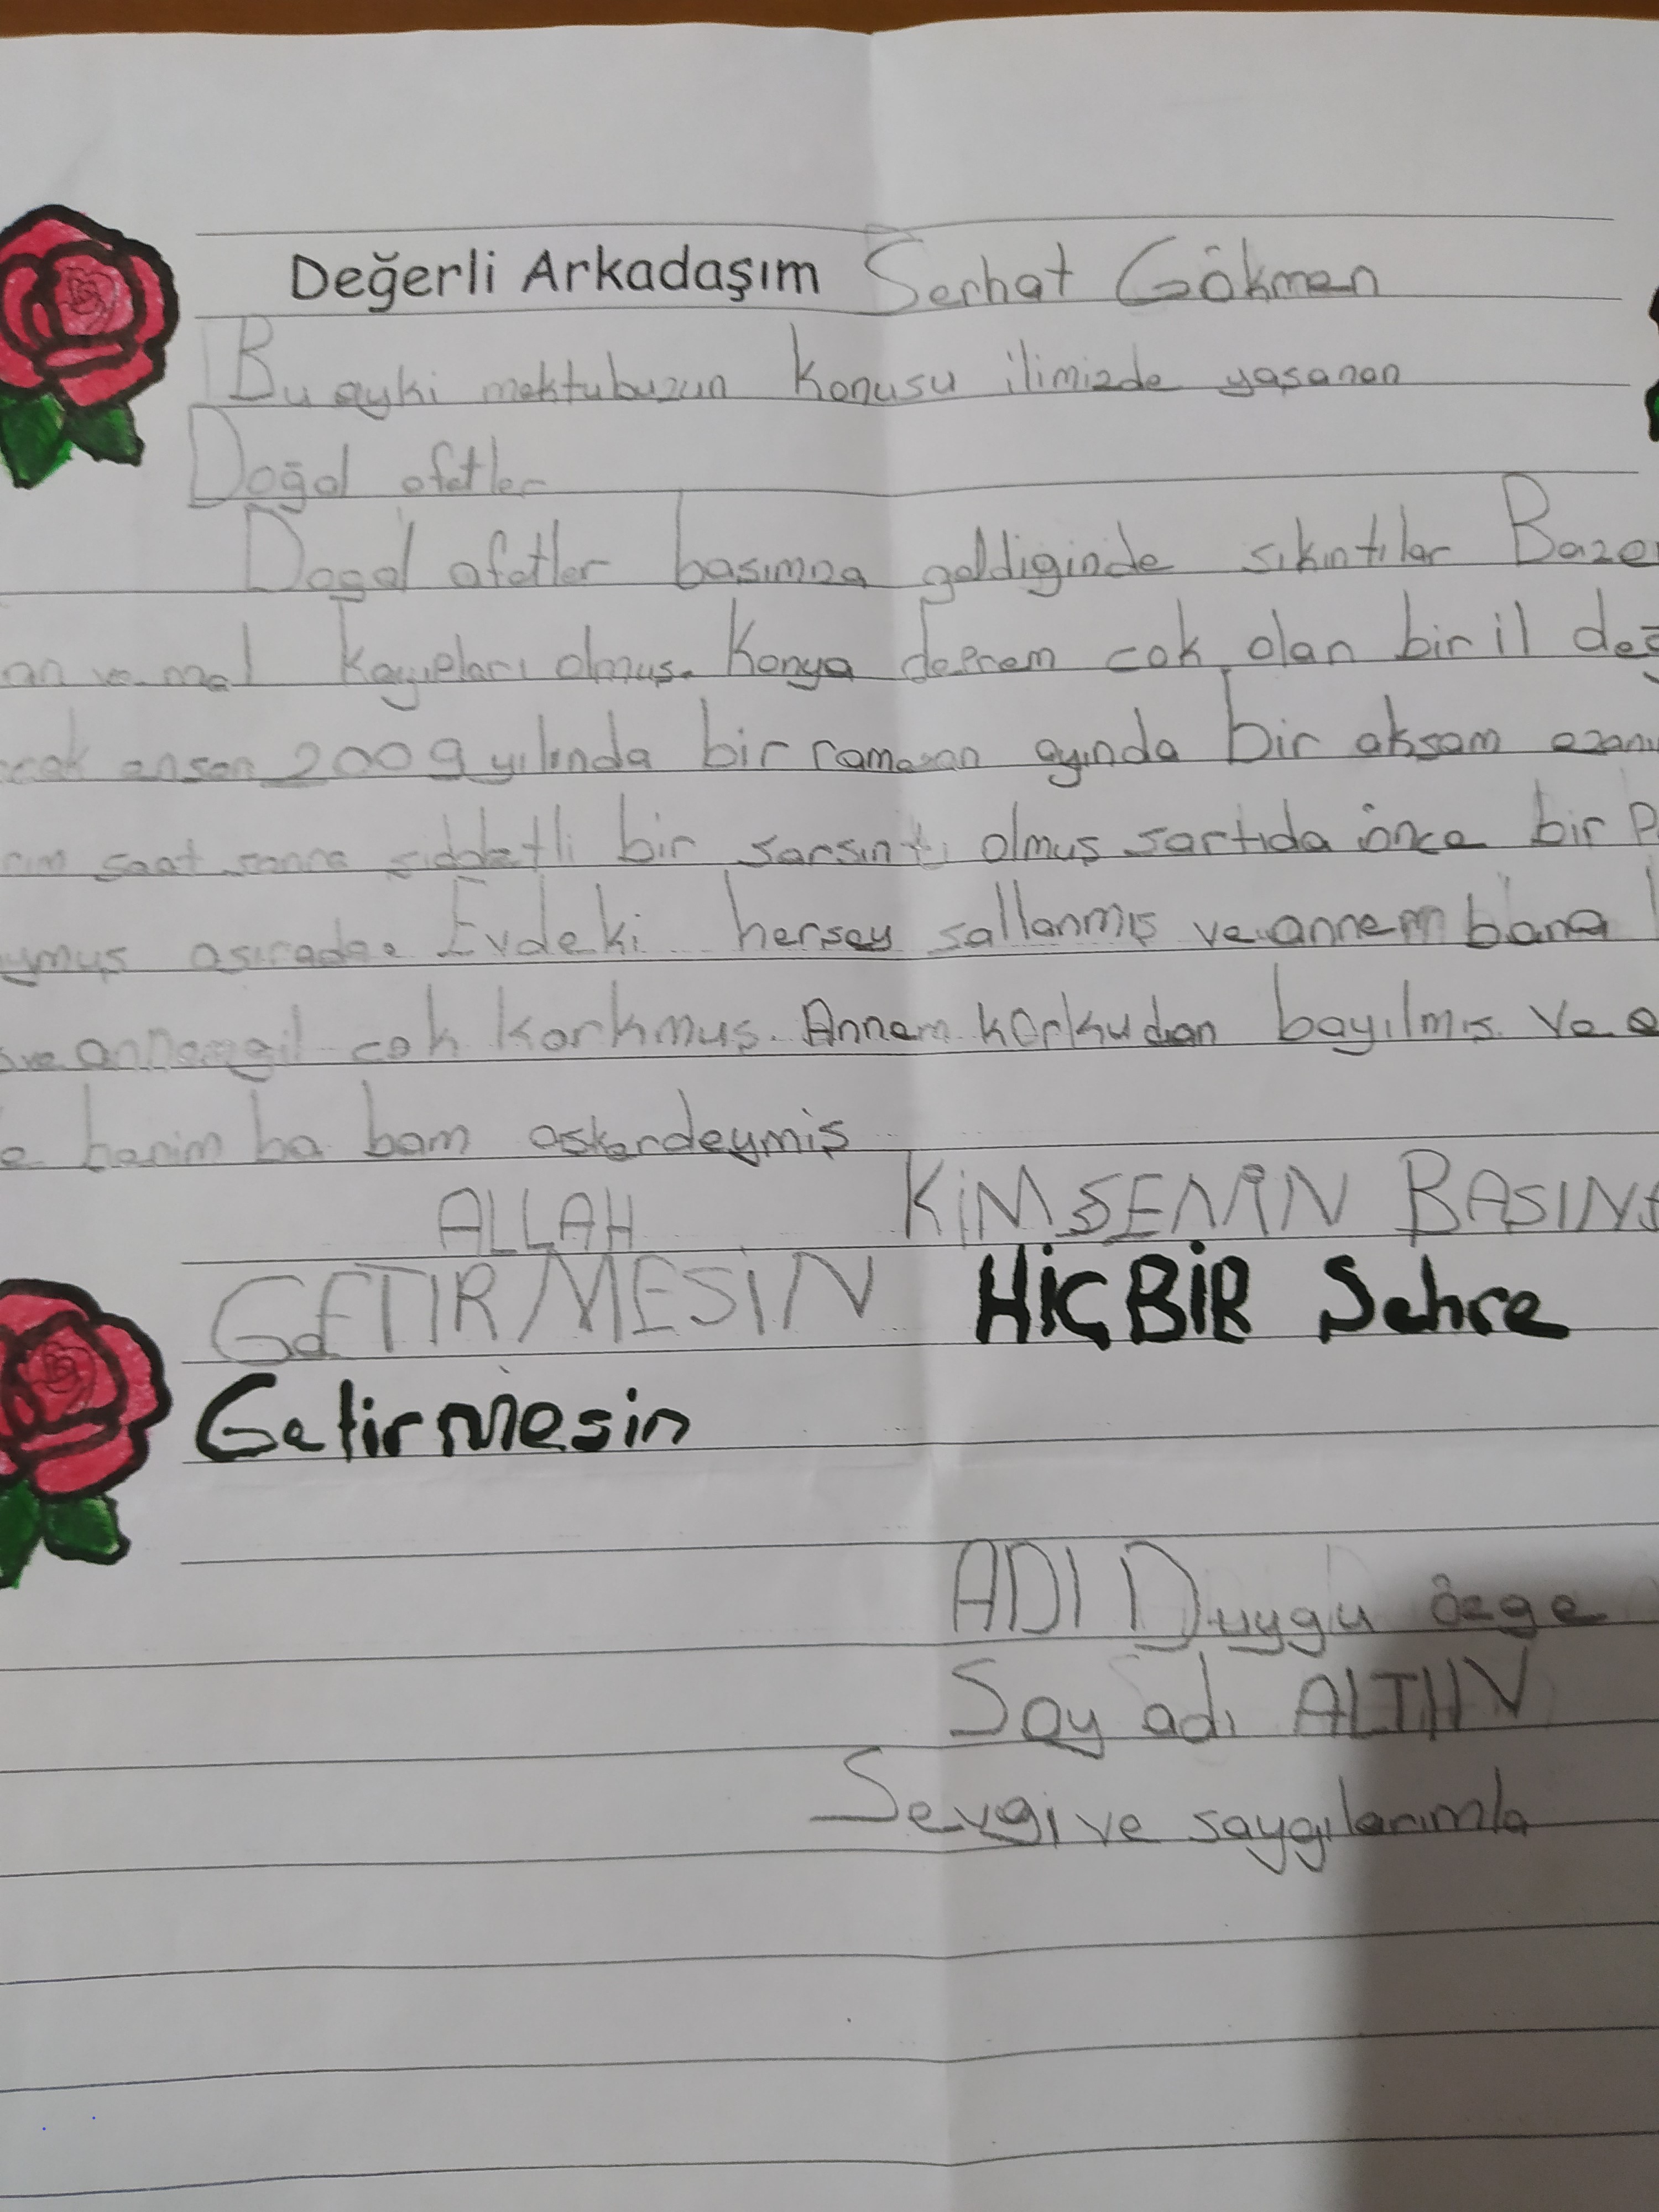 Değerli Arkadaşım Serhat Gökmen
Bu ayki mektubuzun konusu ilimizde yaşanan
Doğal afetler
Dogal afetler basımıza geldiginde sıkıntılar Baze
an ve mal kayıpları olmuş. Konya deprem cok olan bir il değ
cak 2009 yılında bir ramazan ayında bir aksam ezanı
rım saat sonra siddetli bir sarsıntı olmuş sartıda önce bir P
ymuş osırada. Evdeki hersey sallanmış ve annem bana
ve annemgil cok korkmus. Annem korkudan bayılmıs. Ve e
e benim ba bam askerdeymiş
ALLAH KİMSENİN BASINA
GETİRMESİN HİÇBİR Sehre
Getirmesin
ADI Duygu özge
Soy adı ALTIN
Sevgi ve saygılarımla